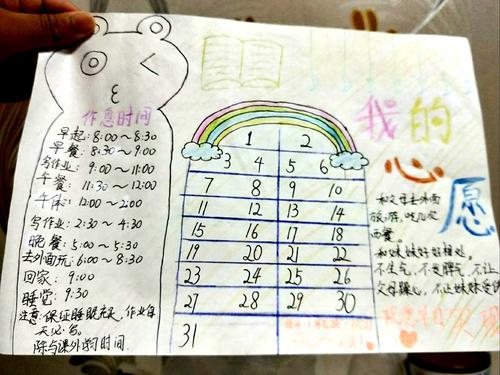 作息时间
早起: 8:00～8:30
早餐: 8:30～9:00
写作业: 9:00～11:00
午餐: 11:30～12:00
午休: 12:00～2:00
写作业: 2:30～4:30
晚餐: 5:00～5:30
去外面玩: 6:00～8:30
回家: 9:00
睡觉: 9:30
注意: 保证睡眠充足, 作业每
天必写。
除与课外学习时间.
1 2
3 4 5 6
7 8 9 10
11 12 13 14
15 16 17 18
19 20 21 22
23 24 25 26
27 28 29 30
31
我的
心愿
和父母去外面
吃几次
西餐。
和妹妹好好相处。
不生气, 不发脾气, 不让
父母操心, 不让妹妹受伤
实现